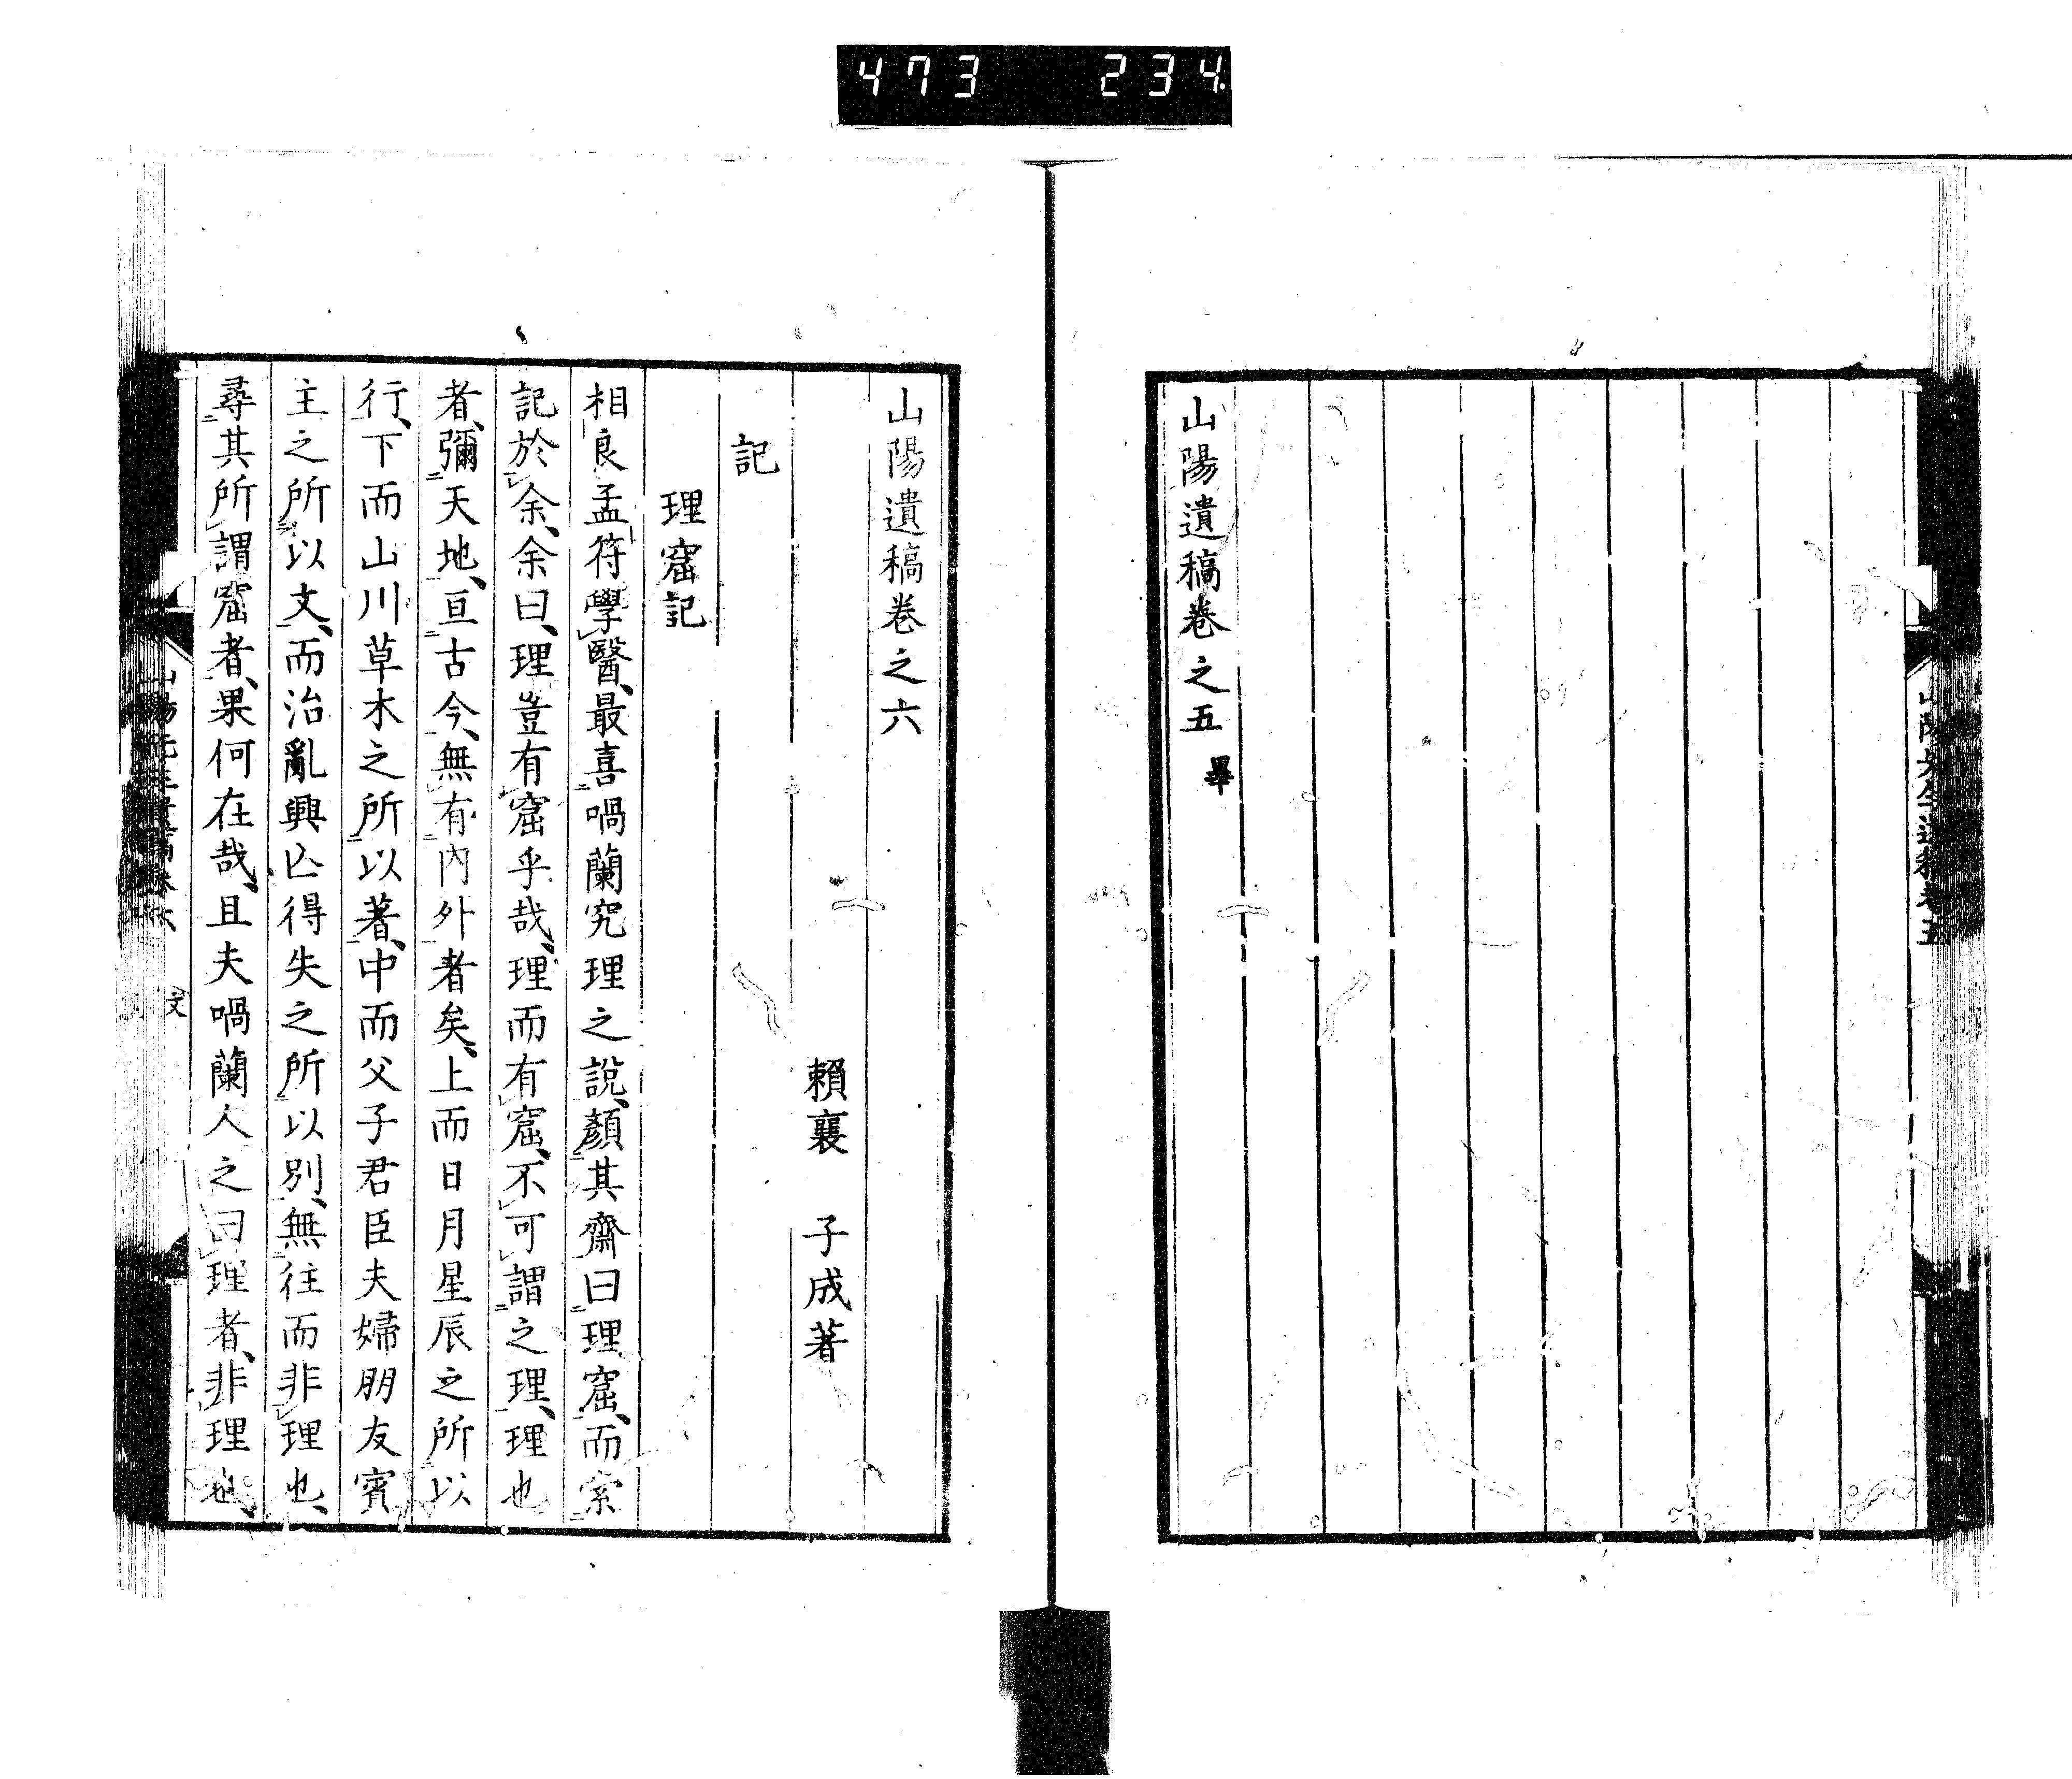 473 234.
山陽遺稿卷之五 畢
山陽遺稿卷之六
賴襄 子成著
記
理窟記
相良孟符學醫、最喜喎蘭究理之說、顏其齋曰理窟、而索
記於余、余曰、理豈有窟乎哉、理而有窟、不可謂之理、理也
者、彌天地、亘古今、無有內外者矣、上而日月星辰之所以
行、下而山川草木之所以著、中而父子君臣夫婦朋友賓
主之所以文、而治亂興亾得失之所以別、無往而非理也、
尋其所謂窟者、果何在哉、且夫喎蘭人之曰理者、非理也、
文